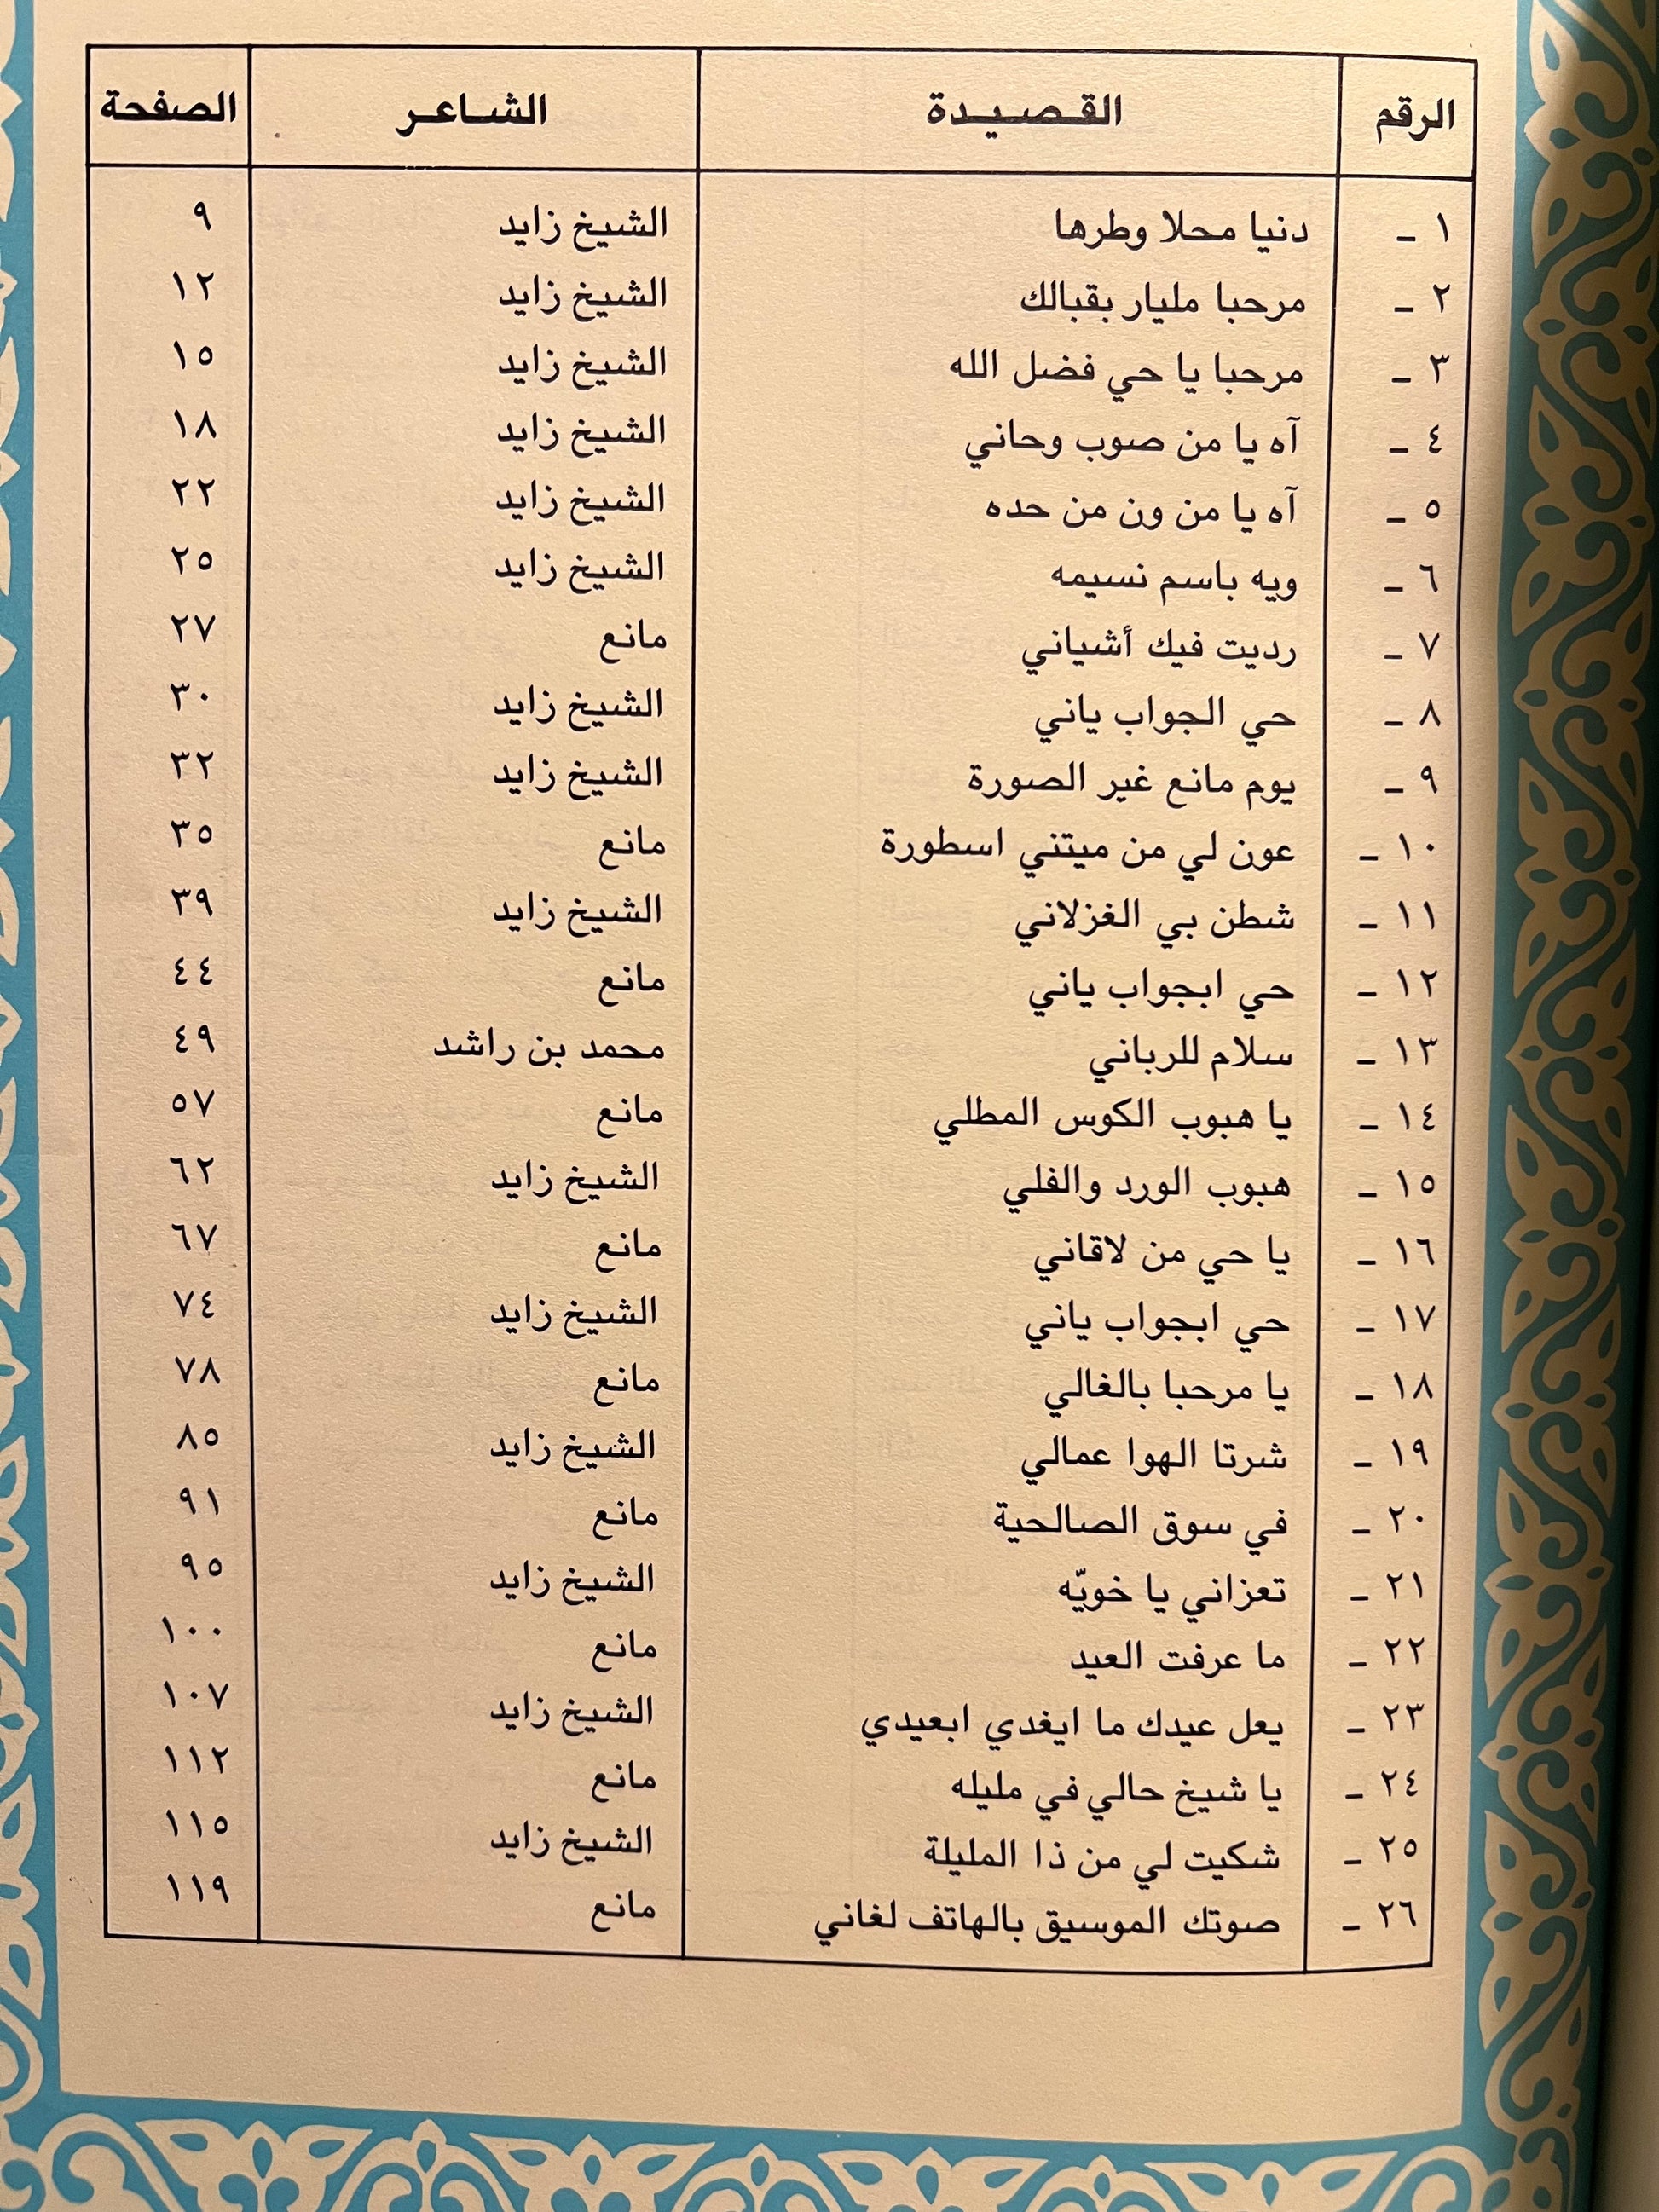 الرقم القصيدة الشاعر الصفحة
١ - دنيا محلا وطرها الشيخ زايد ٩
٢ - مرحبا مليار بقبالك الشيخ زايد ١٢
٣ - مرحبا يا حي فضل الله الشيخ زايد ١٥
٤ - آه يا من صوب وحاني الشيخ زايد ١٨
٥ - آه يا من ون من حده الشيخ زايد ٢٢
٦ - ويه باسم نسيمه الشيخ زايد ٢٥
٧ - رديت فيك أشياني مانع ٢٧
٨ - حي الجواب ياني الشيخ زايد ٣٠
٩ - يوم مانع غير الصورة الشيخ زايد ٣٢
١٠ - عون لي من ميتني اسطورة مانع ٣٥
١١ - شطن بي الغزلاني الشيخ زايد ٣٩
١٢ - حي ابجواب ياني مانع ٤٤
١٣ - سلام للرباني محمد بن راشد ٤٩
١٤ - يا هبوب الكوس المطلي مانع ٥٧
١٥ - هبوب الورد والفلي الشيخ زايد ٦٢
١٦ - يا حي من لاقاني مانع ٦٧
١٧ - حي ابجواب ياني الشيخ زايد ٧٤
١٨ - يا مرحبا بالغالي مانع ٧٨
١٩ - شرتا الهوا عمالي الشيخ زايد ٨٥
٢٠ - في سوق الصالحية مانع ٩١
٢١ - تعزاني يا خويّه الشيخ زايد ٩٥
٢٢ - ما عرفت العيد مانع ١٠٠
٢٣ - يعل عيدك ما ايغدي ابعيدي الشيخ زايد ١٠٧
٢٤ - يا شيخ حالي في مليله مانع ١١٢
٢٥ - شكيت لي من ذا المليلة الشيخ زايد ١١٥
٢٦ - صوتك الموسيق بالهاتف لغاني مانع ١١٩